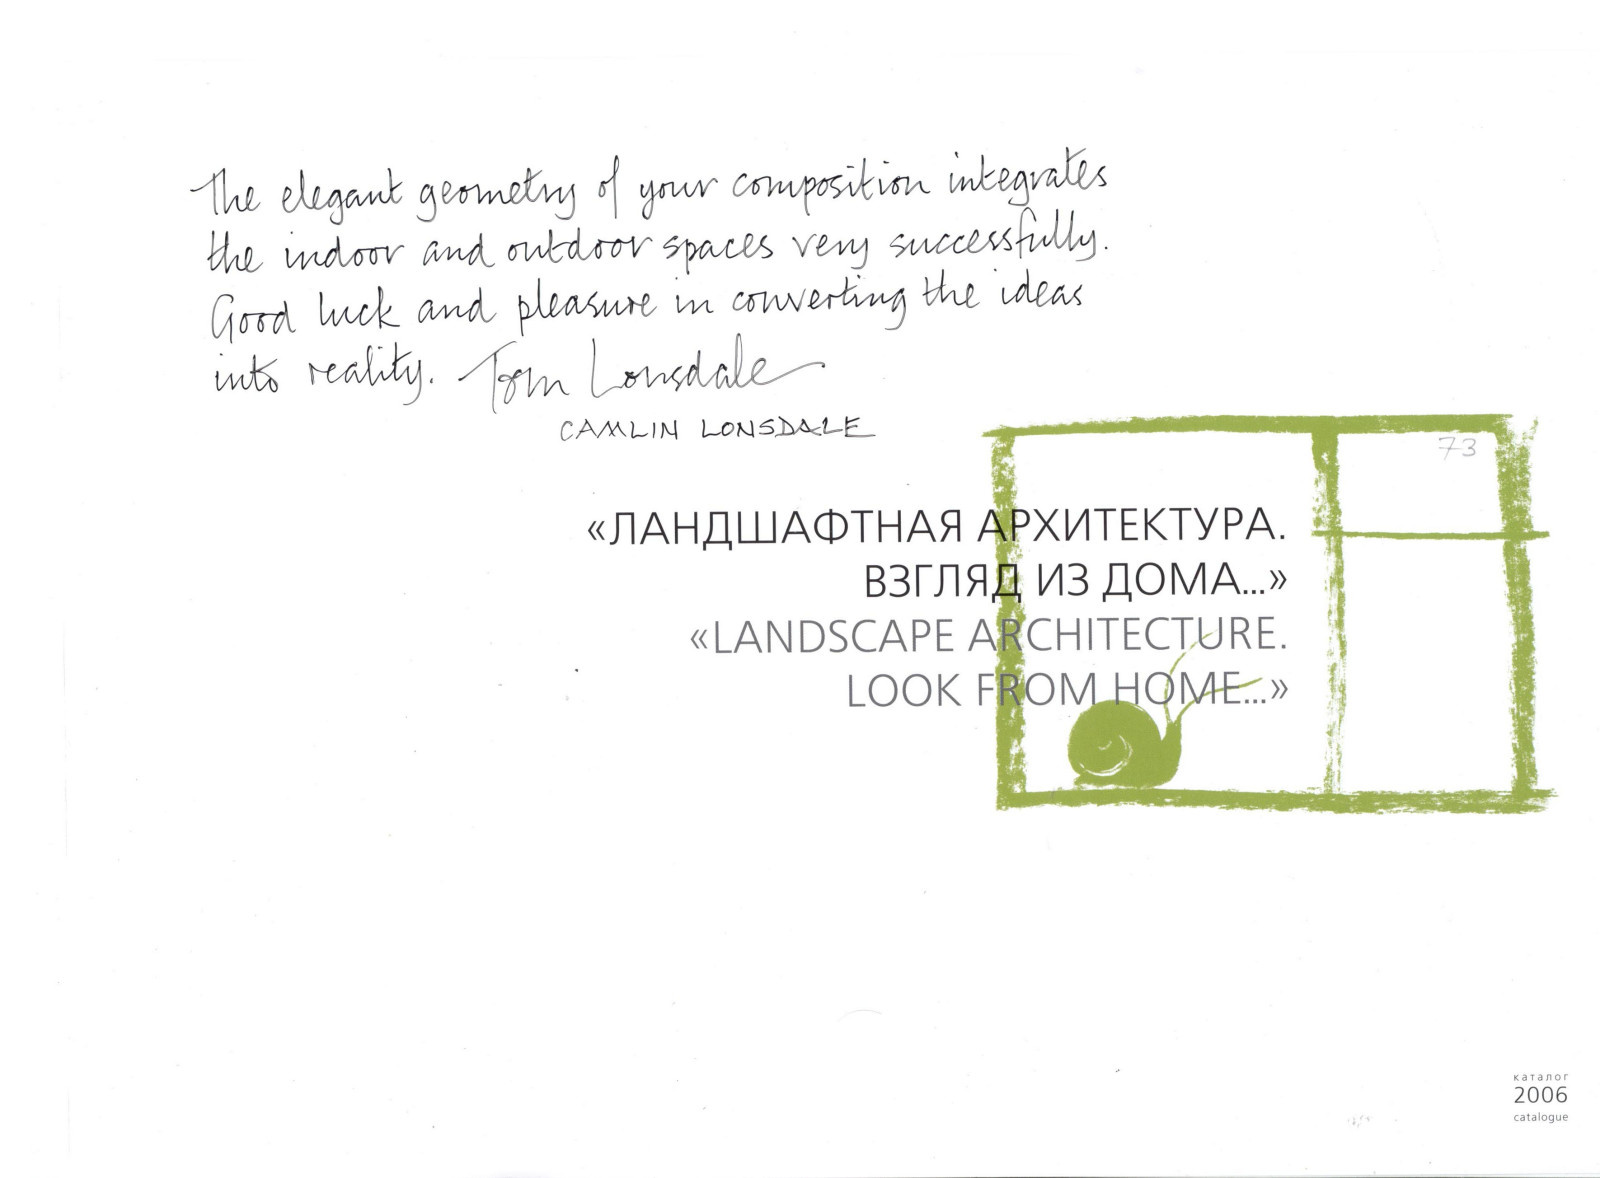 The elegant geometry of your composition integrates
the indoor and outdoor spaces very successfully.
Good luck and pleasure in converting the ideas
into reality. Tom Lonsdale
CAMLIN LONSDALE
73
«ЛАНДШАФТНАЯ АРХИТЕКТУРА.
ВЗГЛЯД ИЗ ДОМА...»
«LANDSCAPE ARCHITECTURE.
LOOK FROM HOME...»
каталог
2006
catalogue